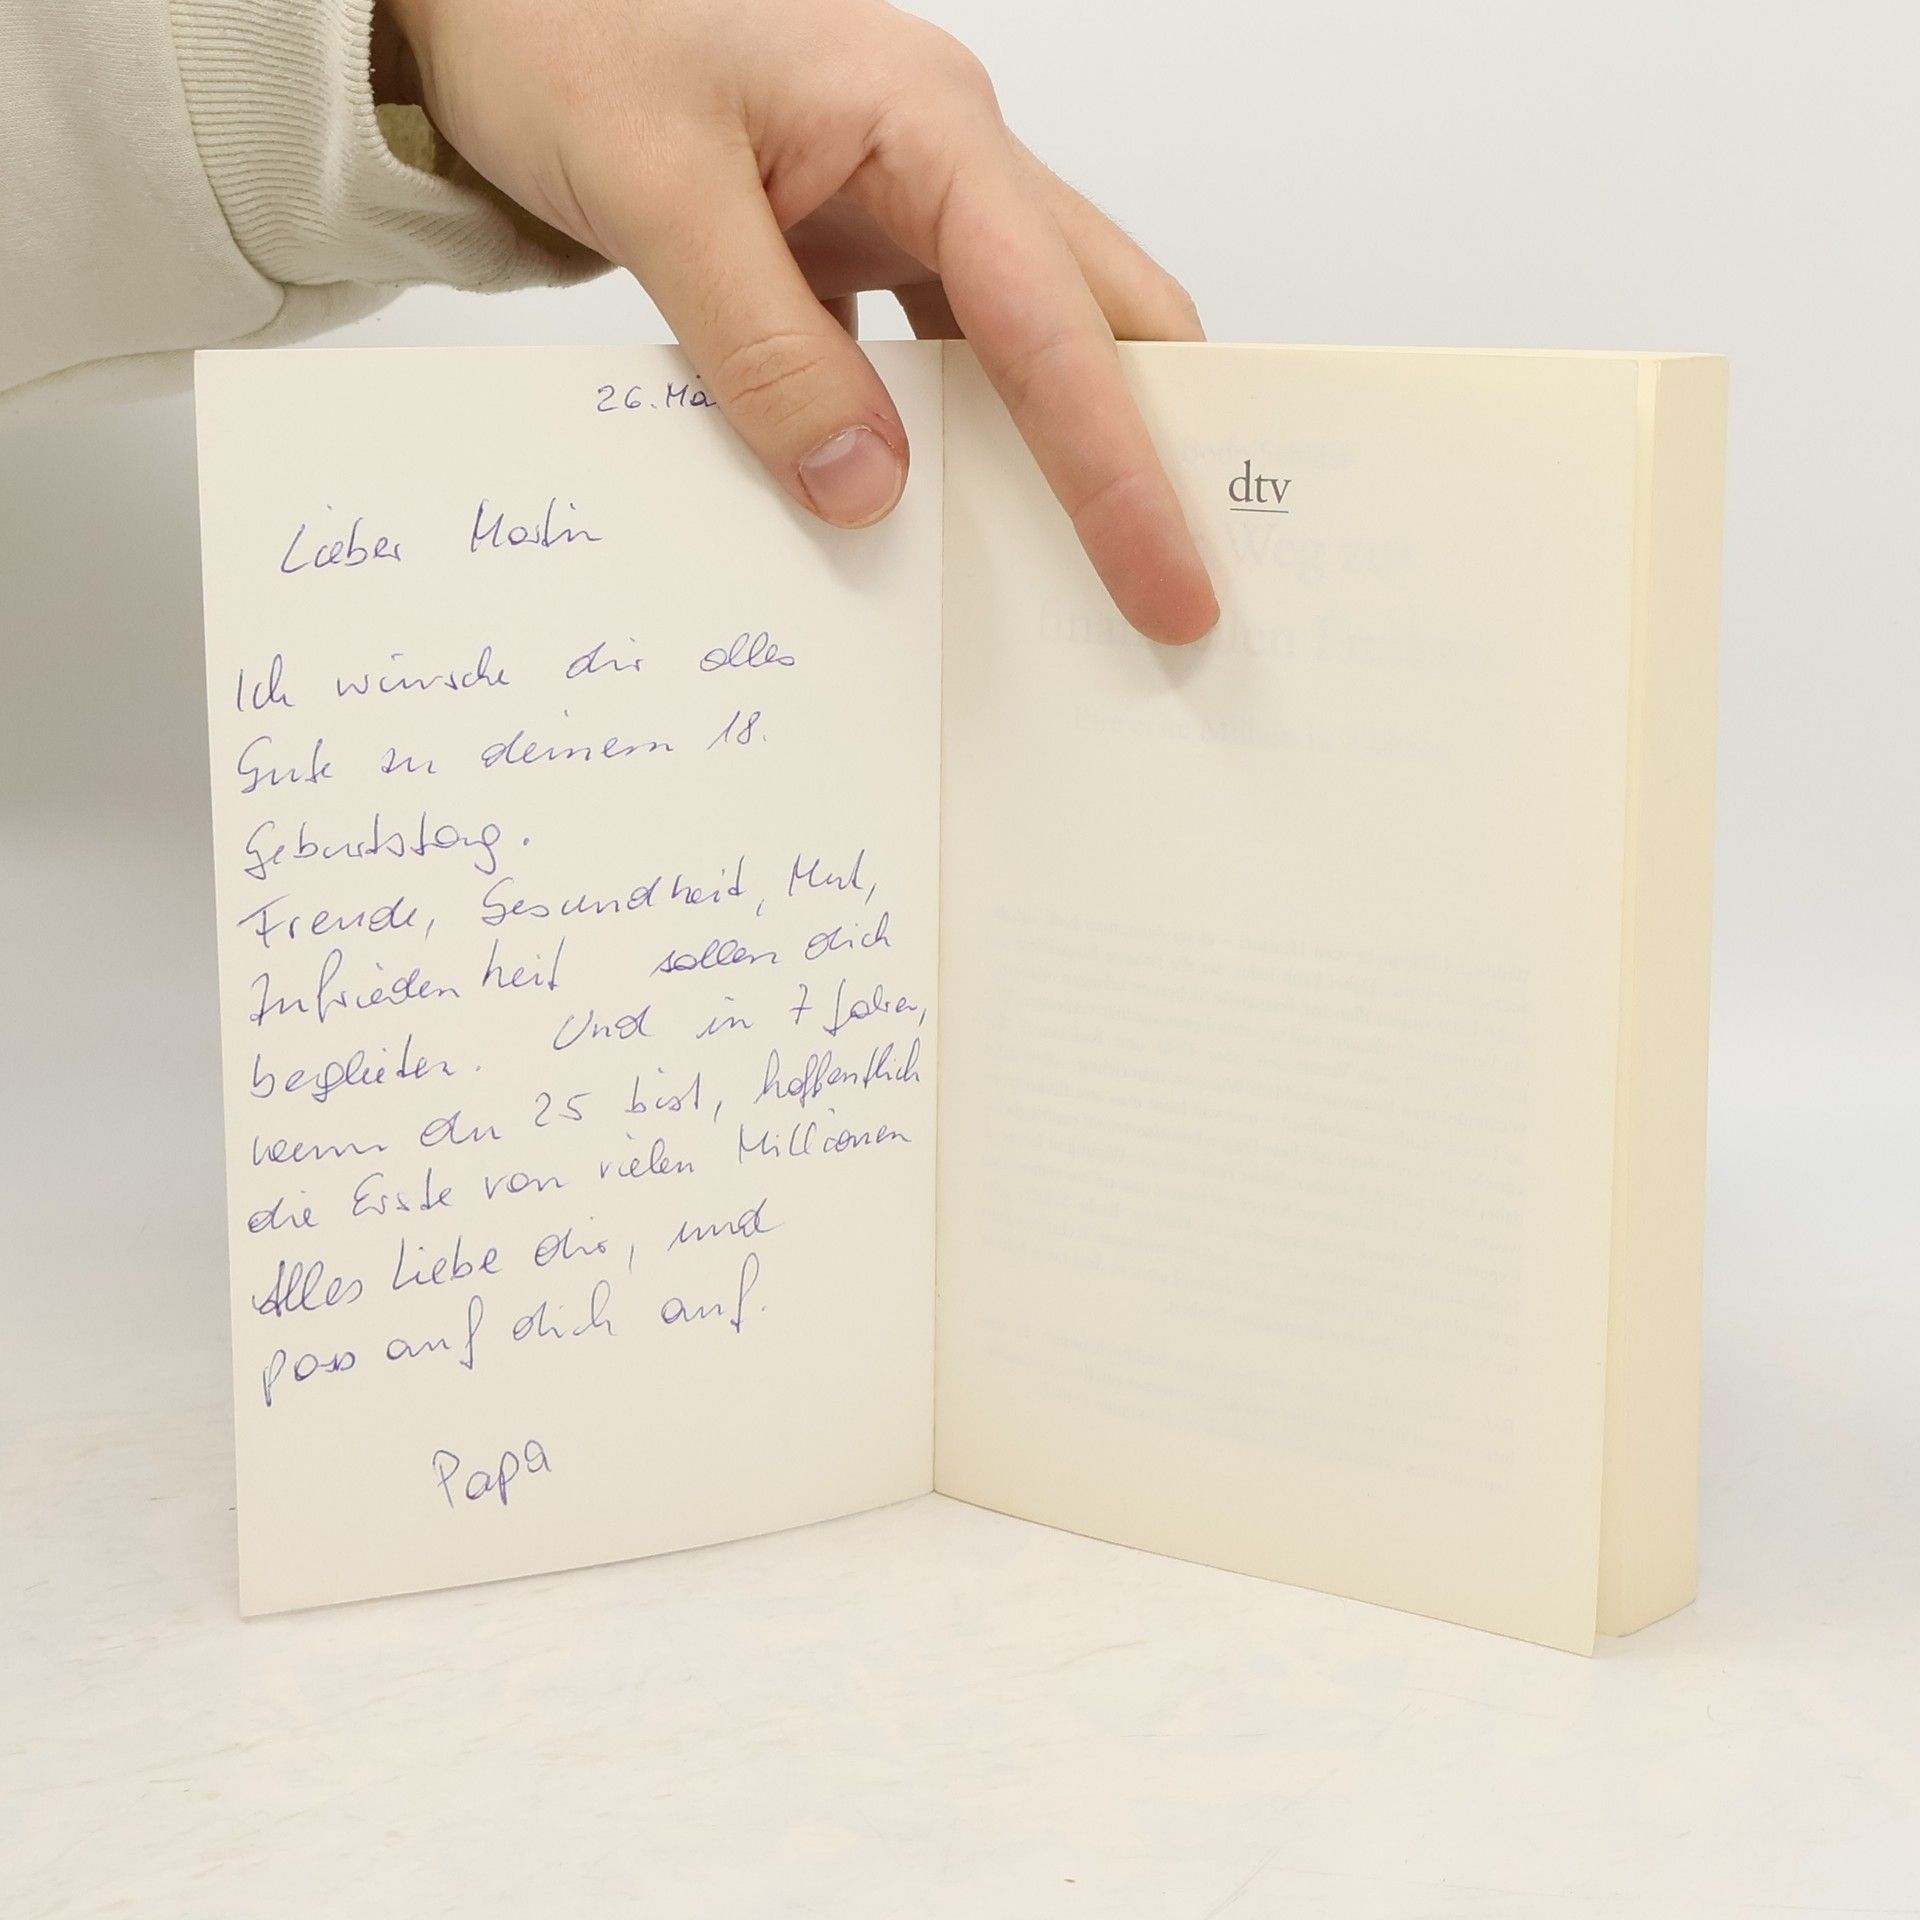 26. Mä
Lieber Martin
Ich wünsche dir alles
Gute zu deinem 18.
Geburtstag.
Freude, Gesundheit, Mut,
Zufriedenheit sollen dich
begleiten. Und in 7 Jahren,
wenn du 25 bist, hoffentlich
die Erste von vielen Millionen
Alles Liebe dir, und
pass auf dich auf.
Papa
dtv
Weg zur